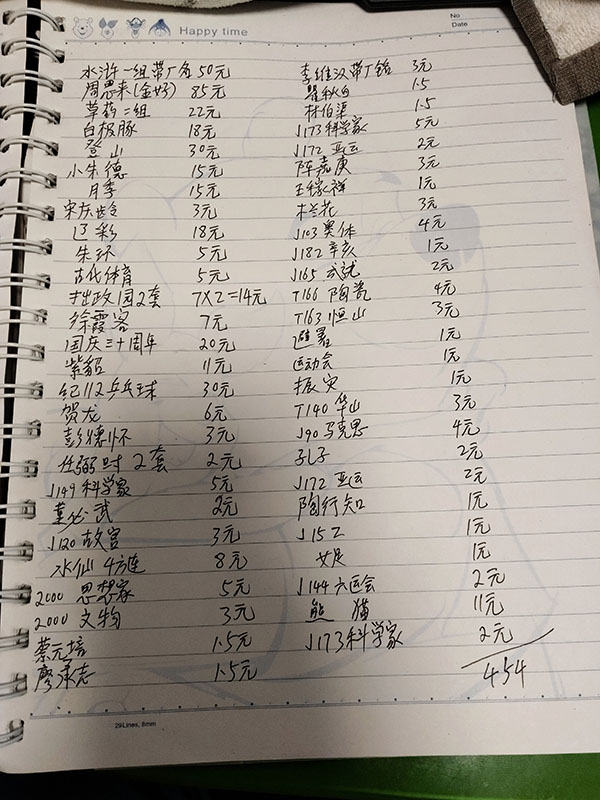 Happy time
No
Date
水浒一组带厂名 50元
周恩来(金好) 85元
草药二组 22元
白极豚 18元
登山 30元
小朱德 15元
月季 15元
宋庆龄 3元
辽彩 18元
朱环 5元
古代体育 5元
拙政园2套 7X2=14元
徐霞客 7元
国庆三十周年 20元
紫貂 11元
纪112乒乓球 30元
贺龙 6元
彭德怀 3元
任弼时 2套 2元
J149科学家 5元
董必武 2元
J120 故宫 3元
水仙 4方连 8元
2000 思想家 5元
2000 文物 3元
蔡元培 1.5元
廖承志 1.5元
李维汉带厂铭 3元
瞿秋白 1.5
林伯渠 1.5
J173科学家 5元
J172 亚运 2元
陈嘉庚 3元
王稼祥 1元
木兰花 3元
J103奥体 4元
J182辛亥 1元
J165 武就 2元
T166 陶瓷 4元
T163恒山 3元
避暑 1元
运动会 1元
振灾 1元
T140 华山 3元
J90马克思 4元
孔子 2元
J172 亚运 2元
陶行知 1元
J15工 1元
女足 1元
J144六运会 2元
熊 猫 11元
J173科学家 2元
454
29Lines, 8mm